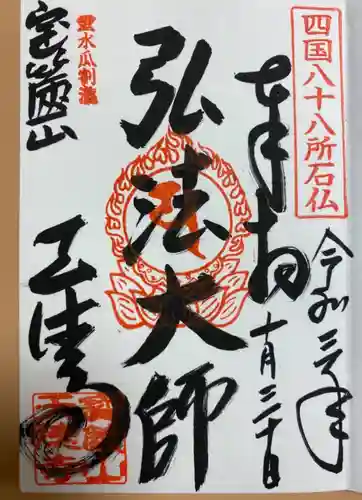 四国八十八所石仏
奉拝
令和三年
十月三十日
弘法大師
霊水瓜割滝
宝篋山